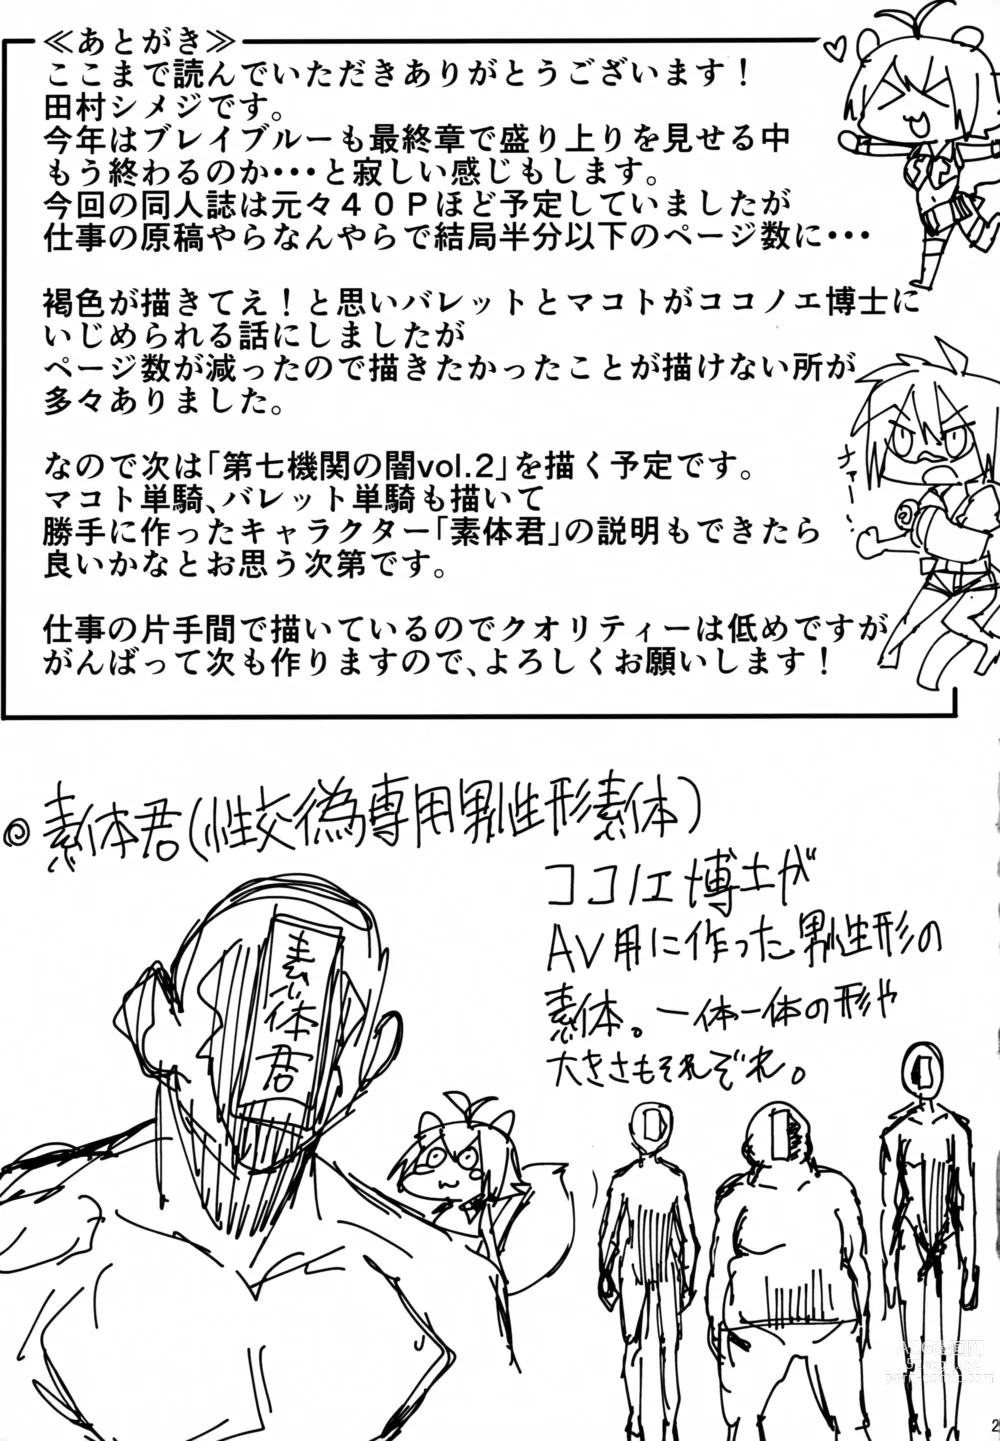 ≪あとがき≫
ここまで読んでいただきありがとうございます！
田村シメジです。
今年はブレイブルーも最終章で盛り上りを見せる中
もう終わるのか・・・と寂しい感じもします。
今回の同人誌は元々４０Ｐほど予定していましたが
仕事の原稿やらなんやらで結局半分以下のページ数に・・・
褐色が描きてえ！と思いバレットとマコトがココノエ博士に
いじめられる話にしましたが
ページ数が減ったので描きたかったことが描けない所が
多々ありました。
なので次は「第七機関の闇vol.2」を描く予定です。
マコト単騎、バレット単騎も描いて
勝手に作ったキャラクター「素体君」の説明もできたら
良いかなとお思う次第です。
仕事の片手間で描いているのでクオリティーは低めですが
がんばって次も作りますので、よろしくお願いします！
ナァー…!
◎素体君(性交偽専用男性形素体)
ココノエ博士が
AV用に作った男性形の
素体。一体一体の形や
大きさもそれぞれ。
素体君
2